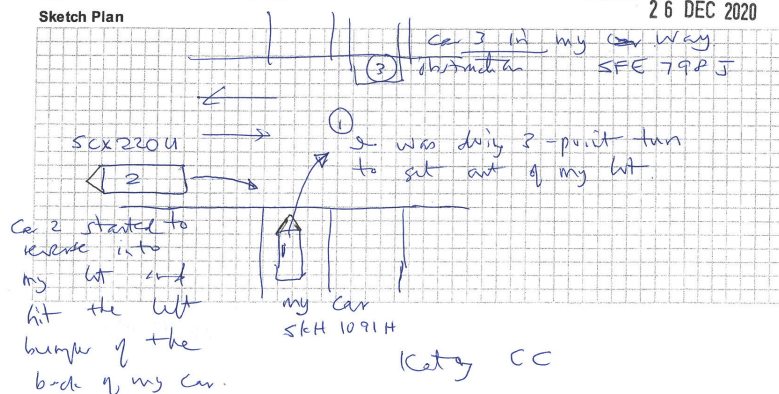 Sketch Plan
26 DEC 2020
Car 3 in my car way
obstruction SFE 798 J
3
1
I was doing 3-point turn
to get out of my lot.
SCX220U
2
Car 2 started to
reverse into
my lot and
hit the left
bumper of the
back of my car.
1
my car
SKH 1091H
CC